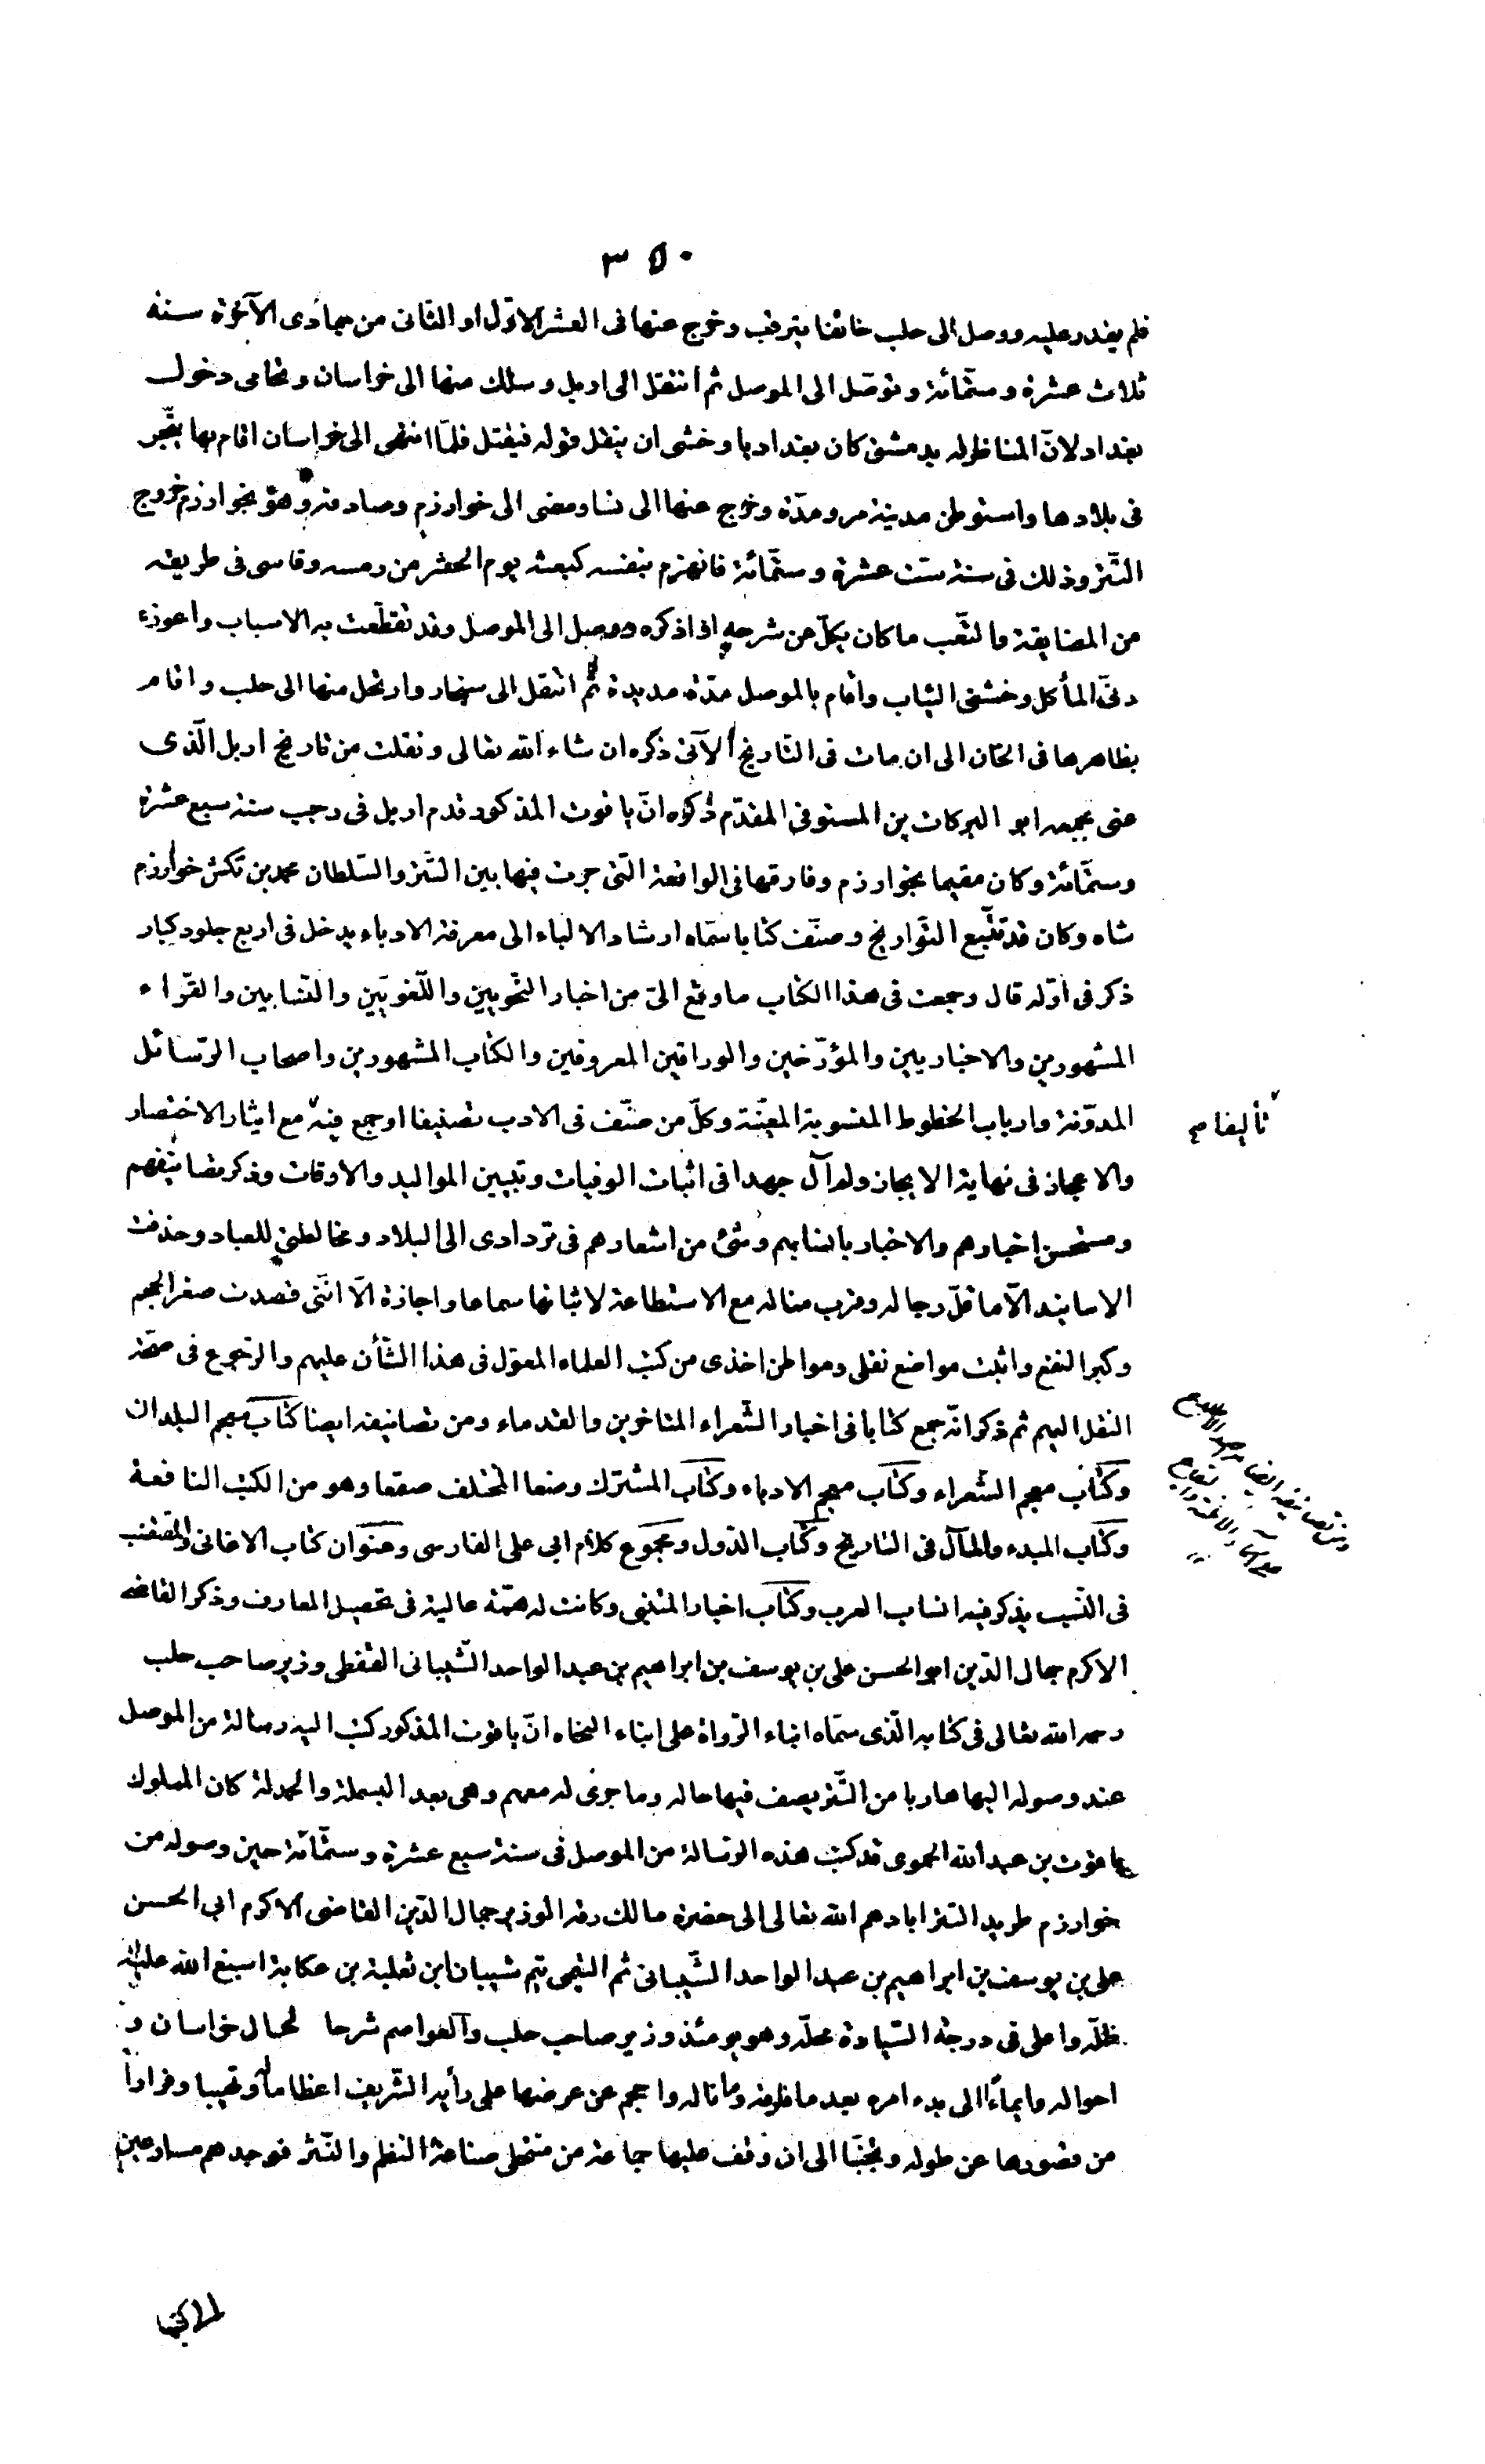 ٣٥٠
فلم يقدر عليه ووصل الى حلب خائفا يترقب وخرج عنها فى العشر الاوّل او الثانى من جمادى الآخرة سنة
ثلاث عشرة وستّمائة وتوصّل الى الموصل ثم انتقل الى اربل وسلك منها الى خراسان وتحامى دخول
بغداد لانّ المناظر له بدمشق كان بغداديا وخشى ان ينقل قوله فيقتل فلمّا انتهى الى خراسان اقام بها يتّجر
فى بلادها واستوطن مدينة مرو مدّة وخرج عنها الى نسا ومضى الى خوارزم وصادفه وهو بخوارزم خروج
التّتر وذلك فى سنة ستّ عشرة وستّمائة فانهزم بنفسه كبعثه يوم الحشر من رمسه وقاسى فى طريقه
من المضايقة والتّعب ما كان يكلّ عن شرحه اذا ذكره ووصل الى الموصل وقد تقطّعت به الاسباب واعوزه
دنىّ المأكل وخشنى الثياب واقام بالموصل مدّة مديدة ثم انتقل الى سنجار وارتحل منها الى حلب واقام
بظاهرها فى الخان الى ان مات فى التاريخ الآتى ذكره ان شاء الله تعالى ونقلت من تاريخ اربل الّذى
عنى بجمعه ابو البركات بن المستوفى المقدّم ذكره انّ ياقوت المذكور قدم اربل فى رجب سنة سبع عشرة
وستّمائة وكان مقيما بخوارزم وفارقها فى الواقعة التى جرت فيها بين التّتر والسّلطان محمد بن تكش خوارزم
شاه وكان قد تتبّع التّواريخ وصنّف كتابا سمّاه ارشاد الالباء الى معرفة الادباء يدخل فى اربع جلود كبار
ذكر فى اوّله قال وجمعت فى هذا الكتاب ما وقع الىّ من اخبار النّحويين واللّغويّين والنّسابين والقرّاء
المشهورين والاخباريين والمؤرّخين والوراقين المعروفين والكتاب المشهورين واصحاب الرّسائل
المدوّنة وارباب الخطوط المنسوبة المعيّنة وكلّ من صنّف فى الادب تصنيفا او جمع فيه مع ايثار الاختصار
تأليفا صح
والاعجاز فى نهاية الايجاز ولم آل جهدا فى اثبات الوفيات وتبيين المواليد والاوقات وذكر تصانيفهم
ومستحسن اخبارهم والاخبار بانسابهم وشئ من اشعارهم فى تردادى الى البلاد ومخالطتى للعباد وحذفت
الاسانيد الّا ما قلّ رجاله وقرب مناله مع الاستطاعة لاثباتها سماعا واجازة الّا انّنى قصدت صغر الحجم
وكبر النفع واثبتّ مواضع نقلى ومواطن اخذى من كتب العلماء المعوّل فى هذا الشّأن عليهم والرّجوع فى صحّة
النقل اليهم ثم ذكر انّه جمع كتابا فى اخبار الشّعراء المتاخرين والقدماء ومن تصانيفه ايضا كتاب معجم البلدان
وكتاب معجم الشّعراء وكتاب معجم الادباء وكتاب المشترك وضعا المختلف صقعا وهو من الكتب النافعة
وكتاب المبدء والمآل فى التاريخ وكتاب الدّول ومجموع كلام ابى على الفارسى وعنوان كتاب الاغانى والمقتضب
فى النّسب يذكر فيه انساب العرب وكتاب اخبار المتنبى وكانت له همّة عالية فى تحصيل المعارف وذكر القاضى
الاكرم جمال الدّين ابو الحسن على بن يوسف بن ابراهيم بن عبد الواحد الشّيبانى القفطى وزير صاحب حلب
رحمه الله تعالى فى كتابه الّذى سمّاه انباء الرّواة على ابناء النحاه انّ ياقوت المذكور كتب اليه رسالة من الموصل
عند وصوله اليها هاربا من التّتر يصف فيها حاله وما جرى له معهم وهى بعد البسملة والحمدلة كان المملوك
ياقوت بن عبد الله الحموى قد كتب هذه الرّسالة من الموصل فى سنة سبع عشرة وستّمائة حين وصوله من
خوارزم طريد التتر ابادهم الله تعالى الى حضرة مالك رقه الوزير جمال الدّين القاضى الاكرم ابى الحسن
على بن يوسف بن ابراهيم بن عبد الواحد الشّيبانى ثم التيمى تيم شيبان ابن ثعلبة بن عكابة اسبغ الله عليه
ظلّه واعلى فى درجة السّيادة محلّه وهو يومئذ وزير صاحب حلب والعواصم شرحا لحال خراسان و
احواله وايماءً الى بدء امره بعد ما فارقه وما ناله واحجم عن عرضها على رأيه الشّريف اعظاما له وتهيبا وفرارا
من قصورها عن طوله وتجنّبا الى ان وقف عليها جماعة من منتحلى صناعة النظم والنّثر فوجدهم مسارعين
الى كتبها